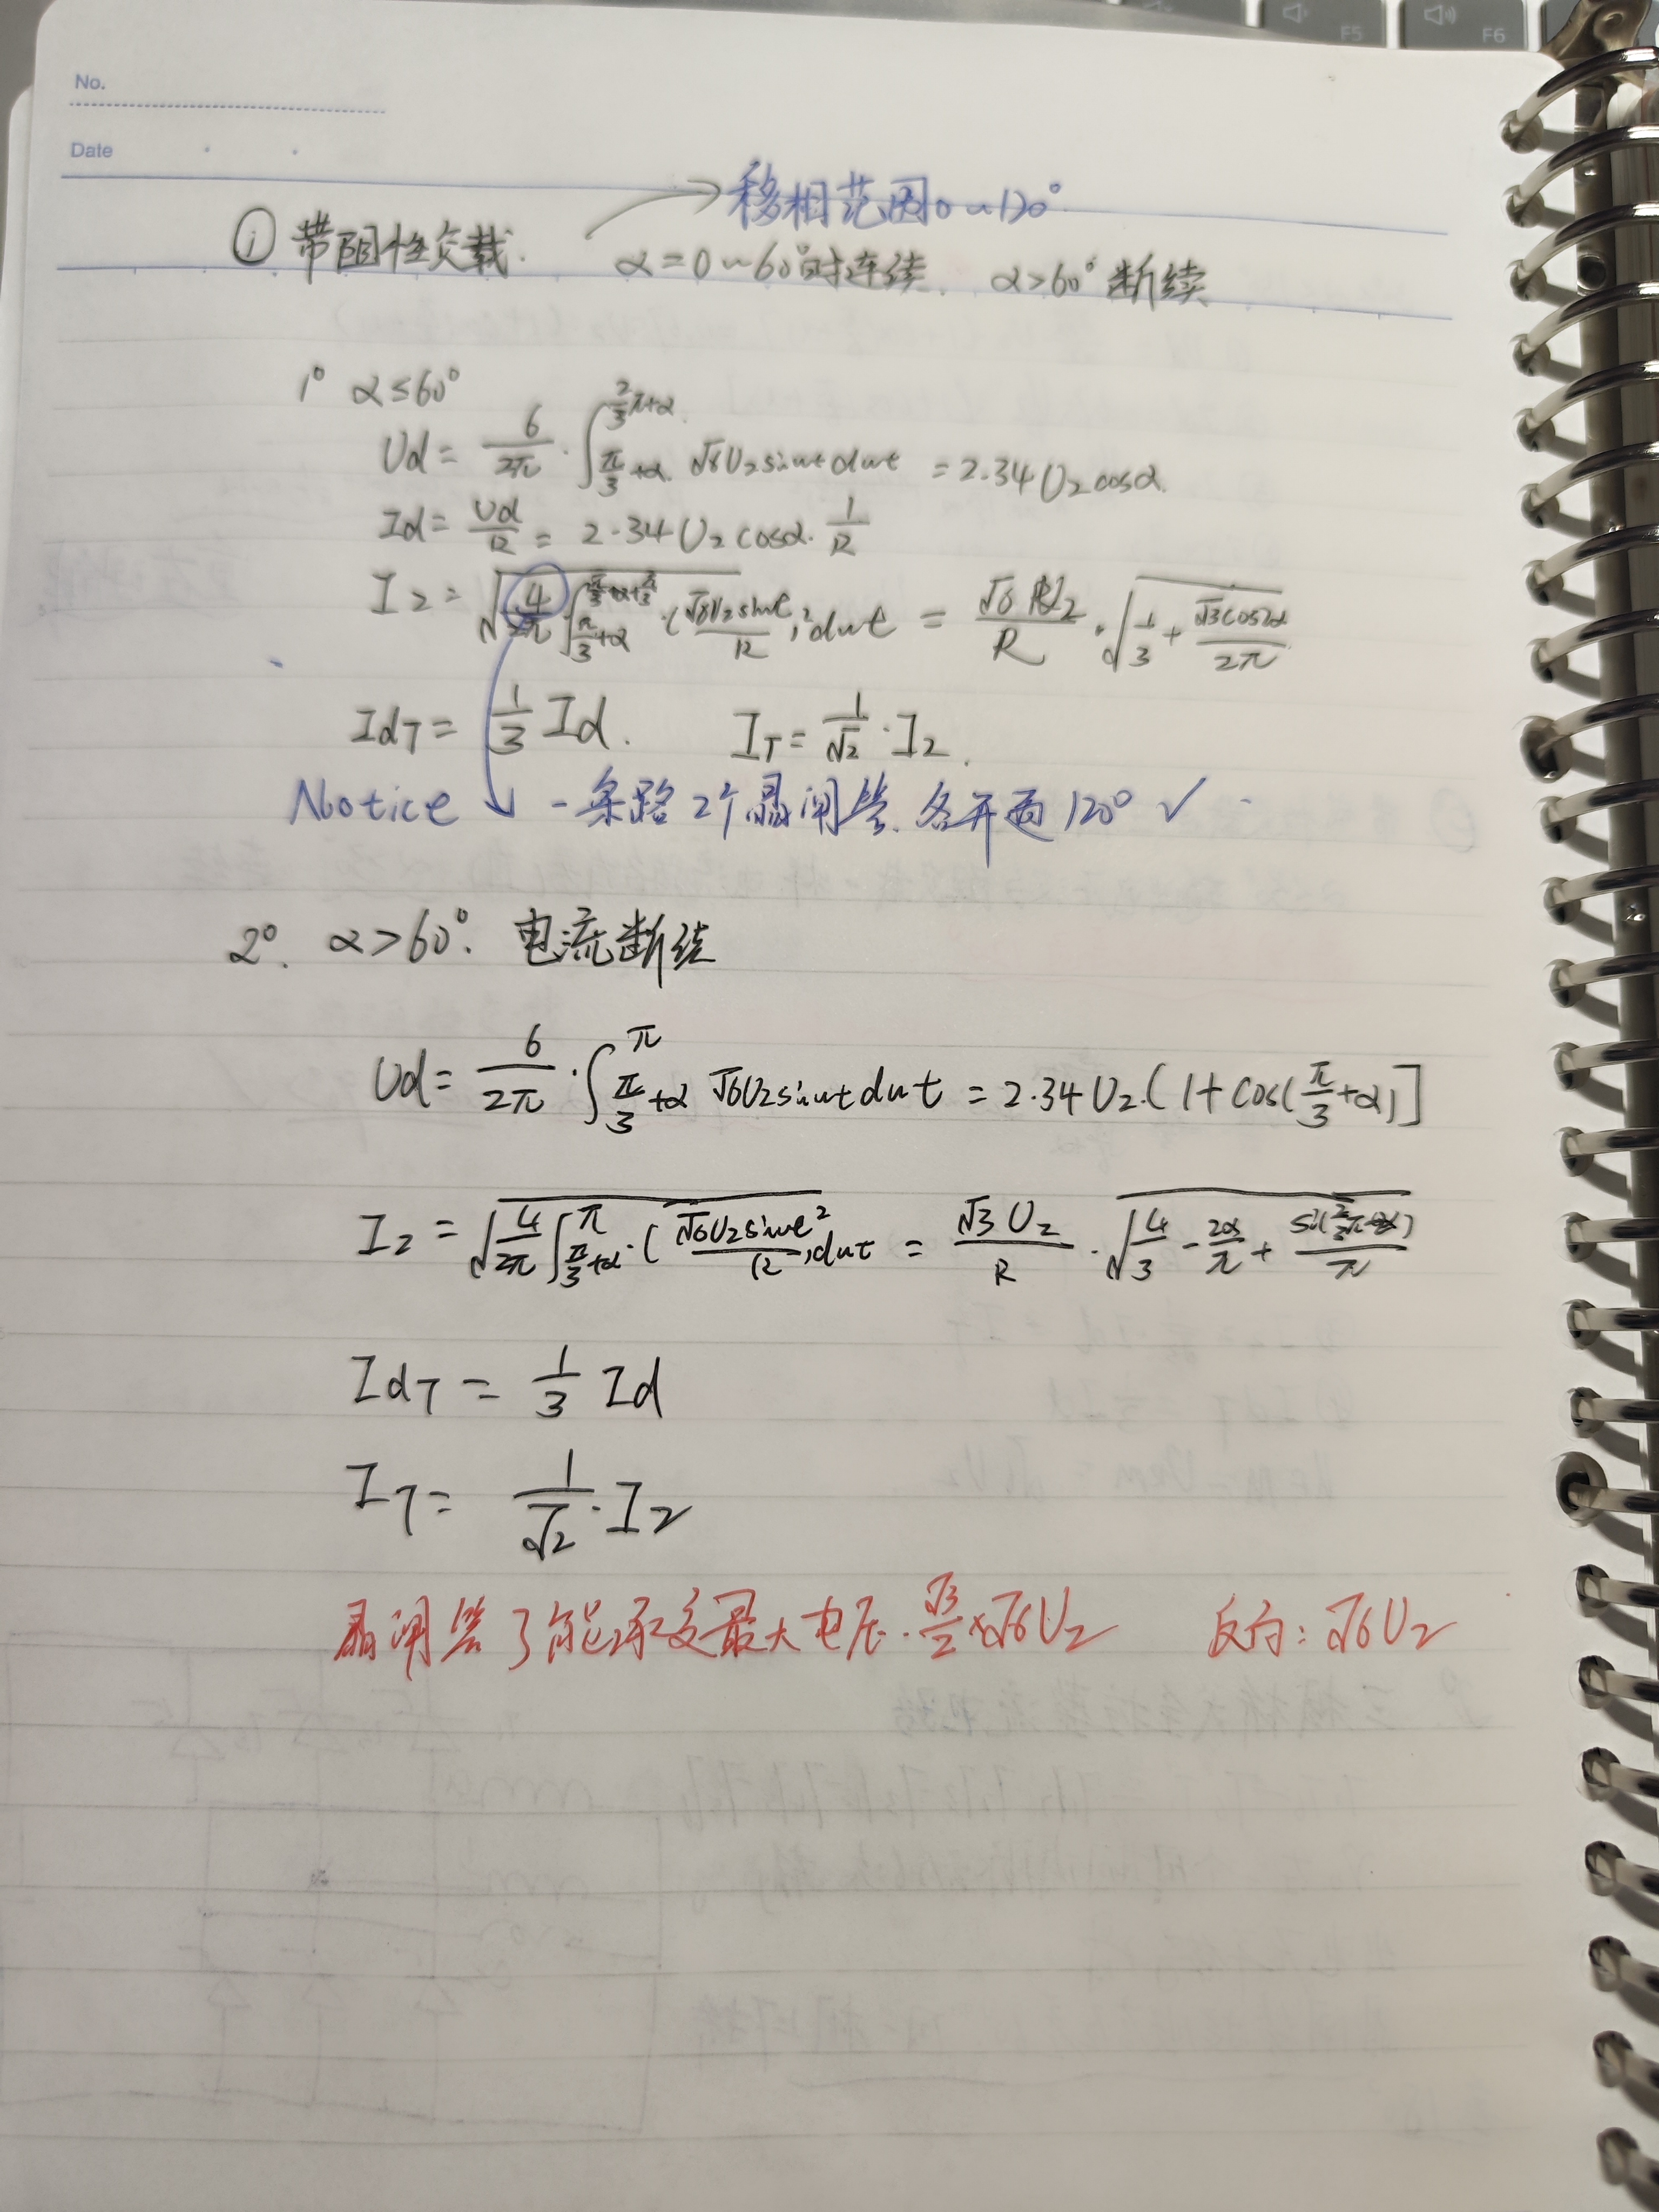 F5
F6
No.
Date
→ 移相范围0~120°
① 带阻性负载. α=0~60°时连续. α>60°断续
1° α≤60°
Ud = 6/2π · ∫_{π/3+α}^{2/3π+α} √6U₂sinωt dωt = 2.34U₂cosα.
Id = Ud/R = 2.34U₂cosα · 1/R
I₂ = √(4/2π ∫_{π/3+α}^{π/3+α+π/3} · (√6U₂sinωt/R)² dωt) = √6U₂/R · √(1/3 + √3cos2α/2π)
IdT = 1/3 Id. IT = 1/√2 · I₂.
Notice ↓ 一条路2个晶闸管.各开通120° ✓
2°. α>60°. 电流断续
Ud = 6/2π · ∫_{π/3+α}^{π} √6U₂sinωt dωt = 2.34U₂·[1+cos(π/3+α)]
I₂ = √(4/2π ∫_{π/3+α}^{π} · (√6U₂sinωt/R)² dωt) = √3U₂/R · √(4/3 - 2α/π + sin(2/3π+2α)/π)
IdT = 1/3 Id
IT = 1/√2 · I₂
晶闸管可能承受最大电压. √3/2×√6U₂ 反向: √6U₂